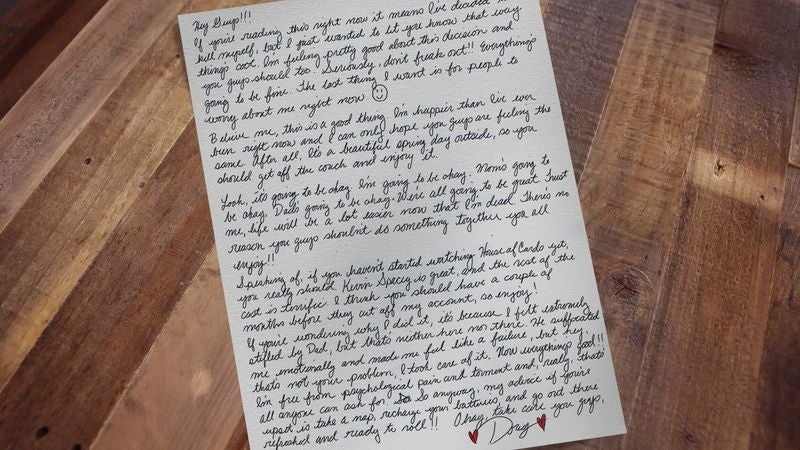 Hey Guys!!!
If you're reading this right now it means I've decided
kill myself, but I just wanted to let you know that every
thing's cool. I'm feeling pretty good about this decision and
you guys should too. Seriously, don't freak out!! Everything's
going to be fine. The last thing I want is for people to
worry about me right now
Believe me, this is a good thing. I'm happier than I've ever
been right now and I can only hope you guys are feeling the
same. After all, its a beautiful spring day outside, so you
should get off the couch and enjoy it.
Look, it's going to be okay. I'm going to be okay. Mom's going to
be okay, Dad's going to be okay. We're all going to be great. Trust
me, life will be a lot easier now that I'm dead. There's no
reason you guys shouldn't do something together you all
enjoy!!
Speaking of, if you haven't started watching House of Cards yet,
you really should. Kevin Spacey is great, and the rest of the
cast is terrific. I think you should have a couple of
months before they cut off my account, so enjoy!
If you're wondering why I did it, it's because I felt extremely
stifled by Dad, but that's neither here nor there. He suffocated
me emotionally and made me feel like a failure, but hey,
that's not your problem, I took care of it. Now everything's good!!
I'm free from psychological pain and torment and, really, that's
all anyone can ask for. So anyway, my advice if you're
upset is take a nap, recharge your batteries, and go out there
refreshed and ready to roll!! Okay, take care you guys,
Doug